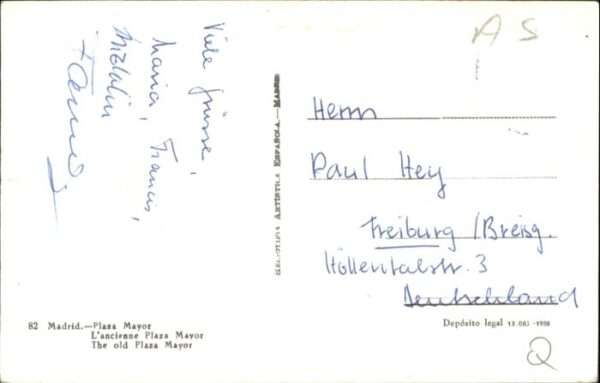 Viele Grüsse,
Maria, Francis,
AS
HELIOTIPIA ARTISTICA ESPAÑOLA.—MADRID
Herrn
Paul Hey
Freiburg /Breisg.
Höllentalstr. 3
Deutschland
82 Madrid.—Plaza Mayor
L'ancienne Plaza Mayor
The old Plaza Mayor
Depósito legal
Q